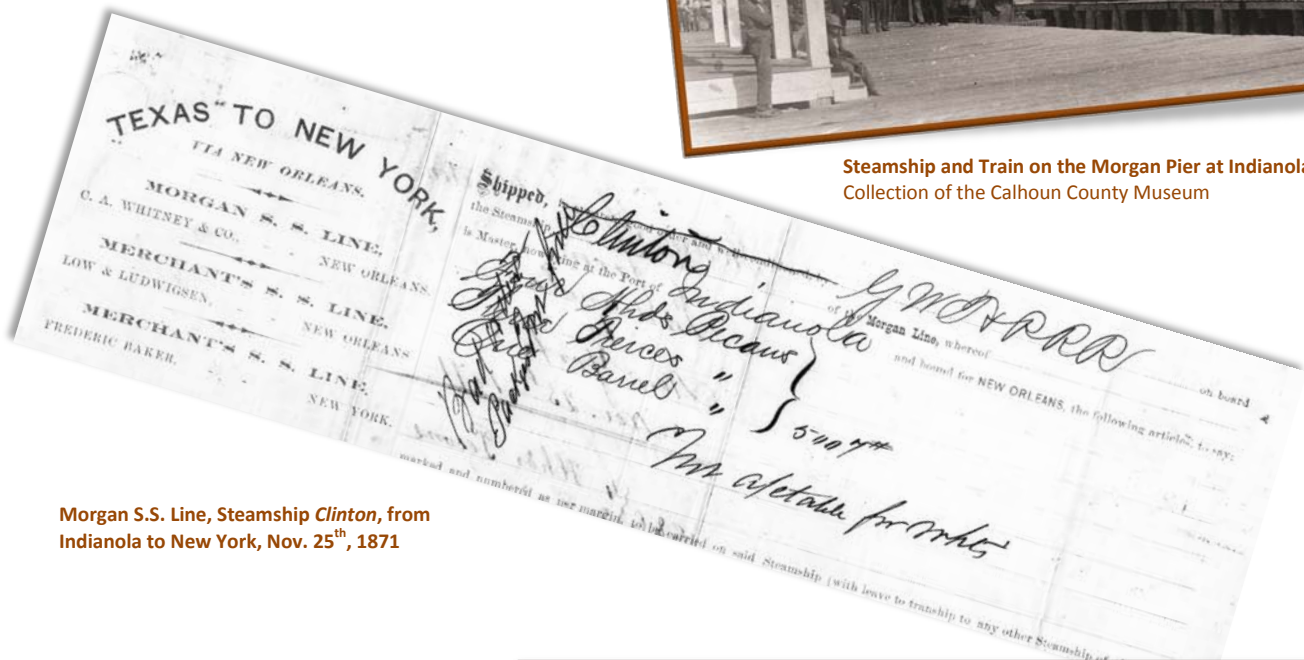 Steamship and Train on the Morgan Pier at Indianola
Collection of the Calhoun County Museum
"TEXAS" TO NEW YORK,
VIA NEW ORLEANS.
MORGAN S. S. LINE,
C. A. WHITNEY & CO., NEW ORLEANS.
MERCHANT'S S. S. LINE,
LOW & LUDWIGSEN, NEW ORLEANS
MERCHANT'S S. S. LINE,
FREDERIC BAKER, NEW YORK.
Shipped, order and G W T & P RR on board
the Steamship Clinton of the Morgan Line, whereof
is Master, now lying at the Port of Indianola and bound for NEW ORLEANS, the following articles, to say:
Hhds Pecans
Tierces "
One Barrel "
Bad
Not for
marked and numbered as per margin, to be carried on said Steamship (with leave to tranship to any other Steamship
Morgan S.S. Line, Steamship Clinton, from
Indianola to New York, Nov. 25th, 1871